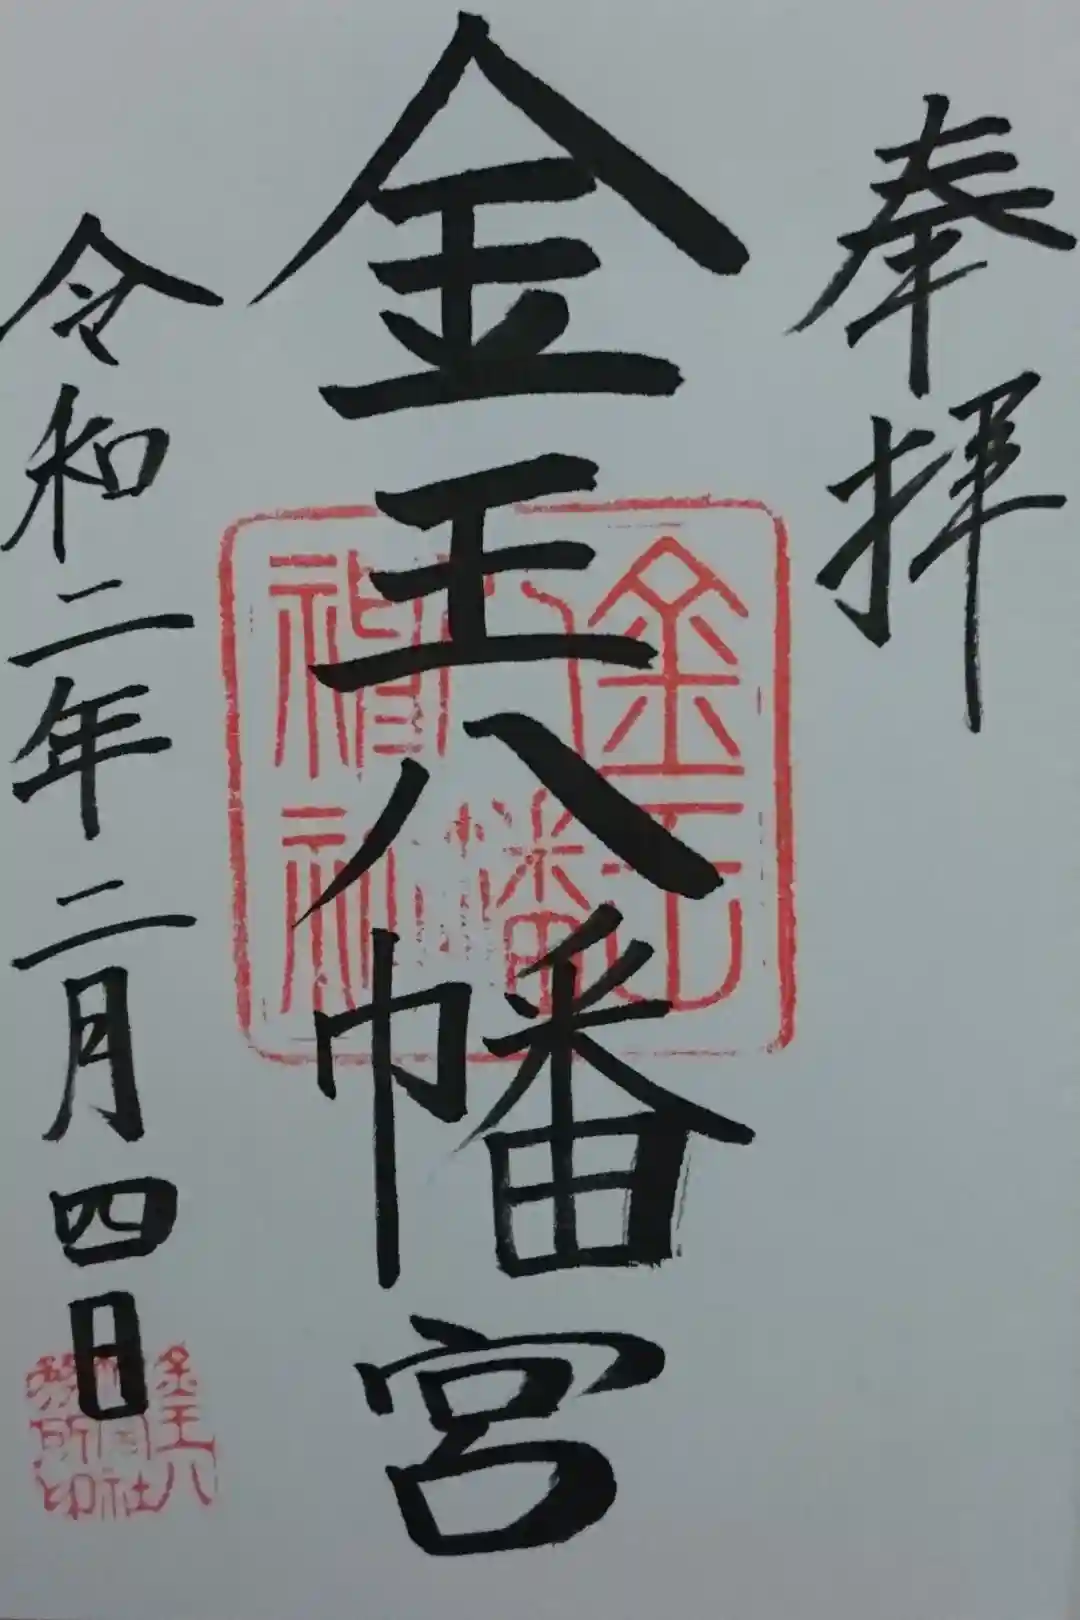 奉拝
金王八幡宮
令和二年二月四日
金王
八幡
神社
金王八
幡宮社
務所印